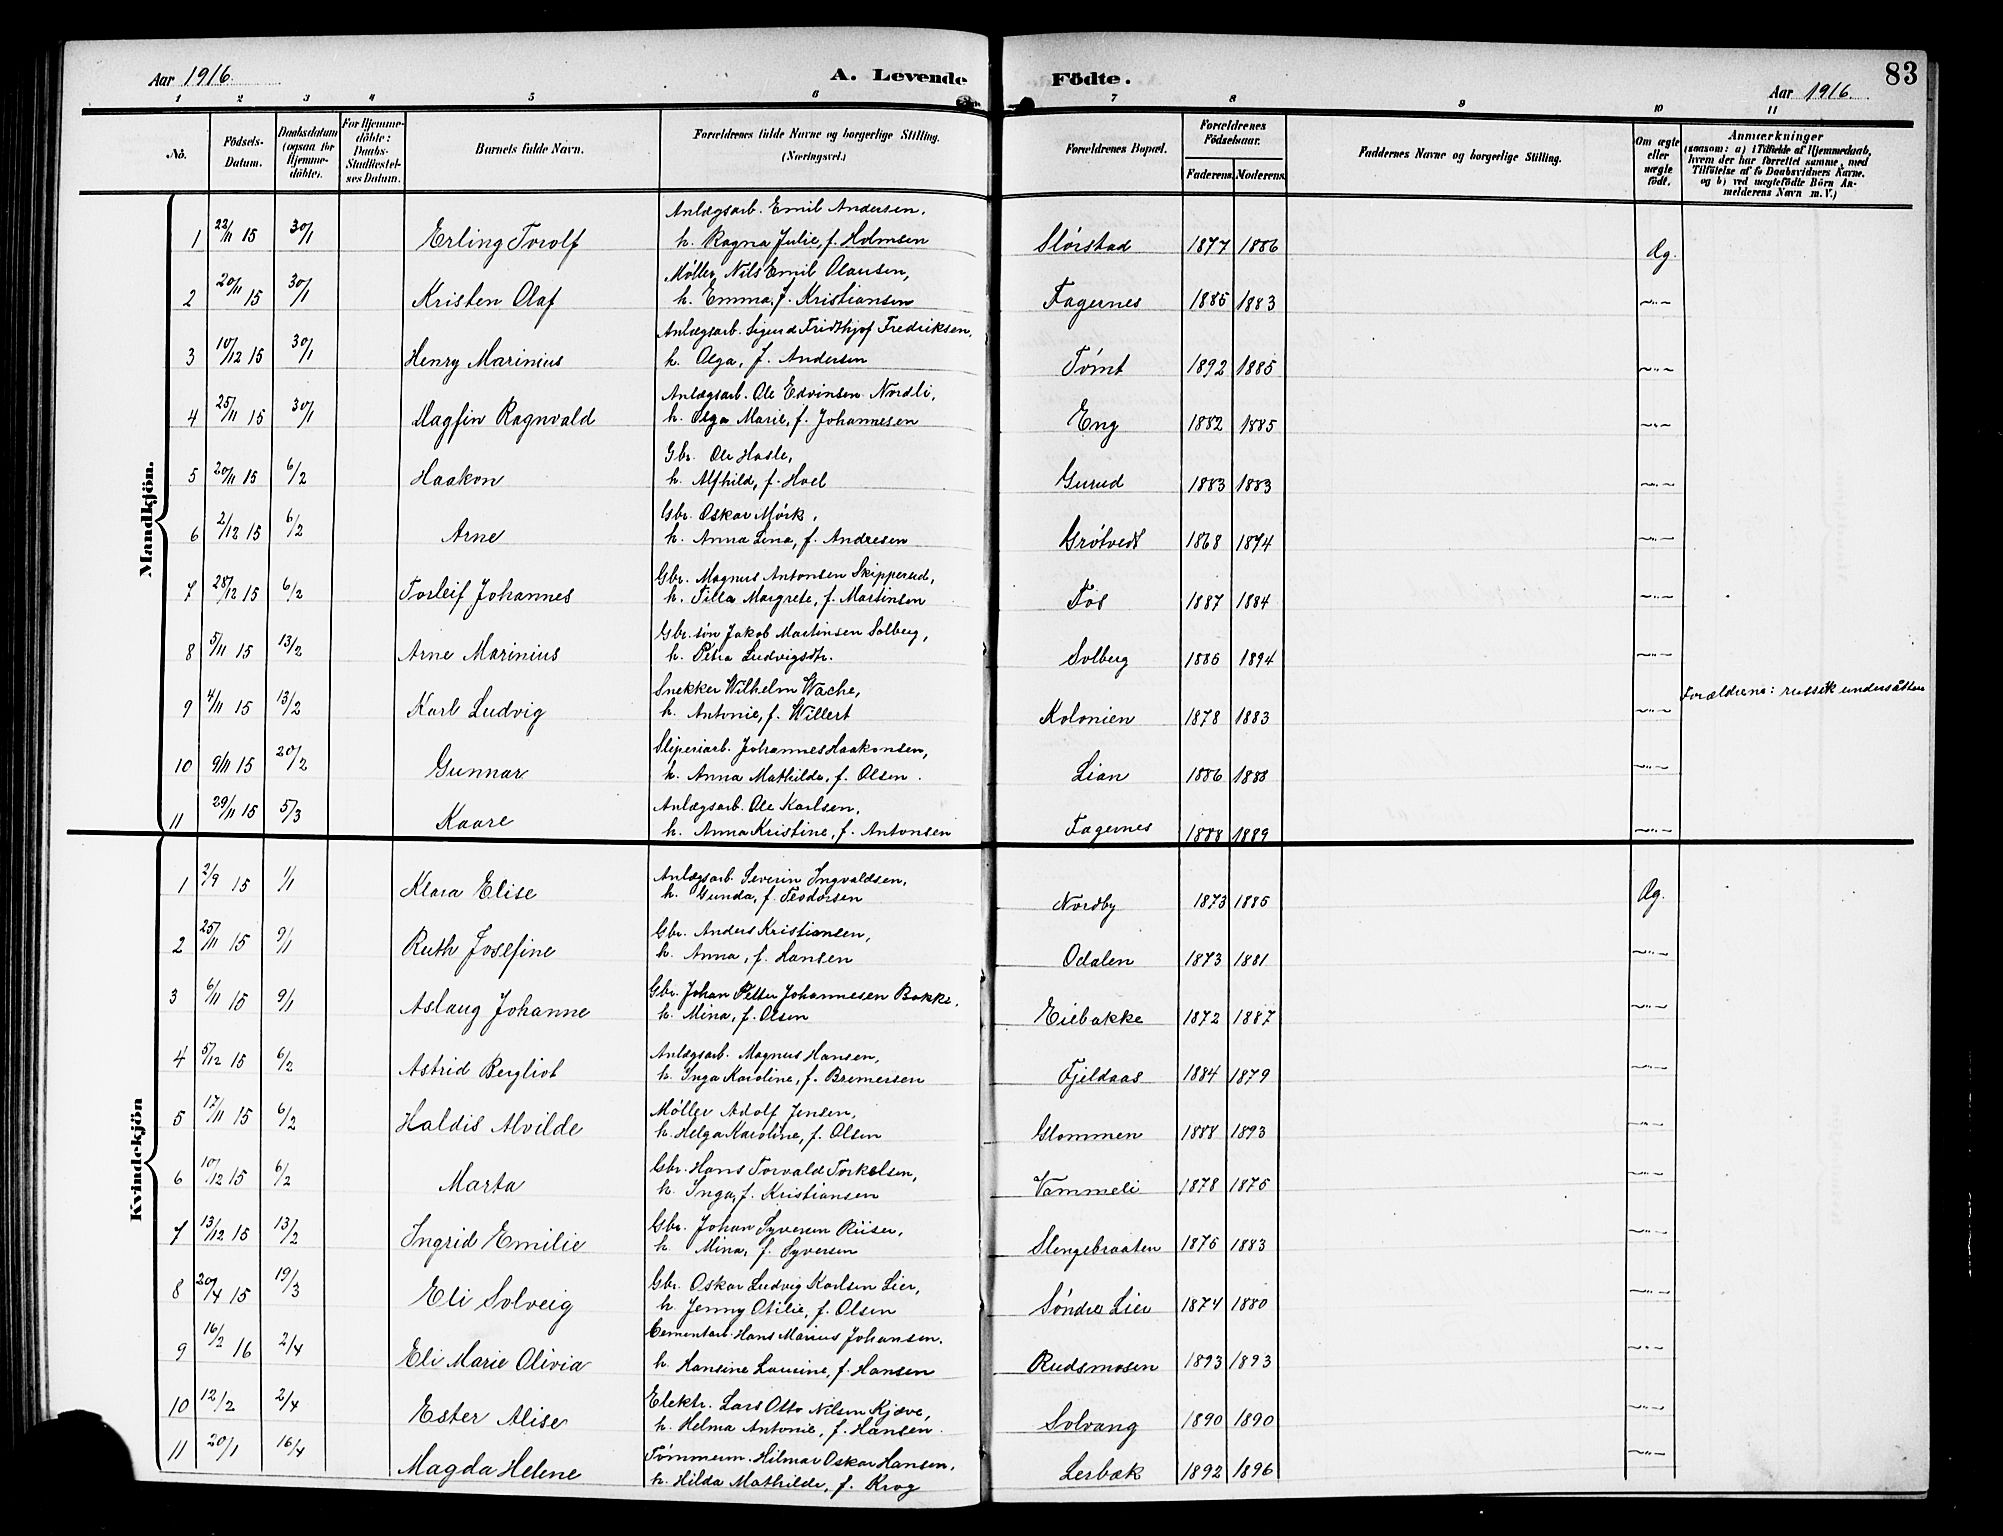 Aar 1916.
A. Levende Födte.
83
Aar 1916.
1 2 3 4 5 6 7 8 9 10 11
No. Födsels-Datum. Daabsdatum (ogsaa for Hjemme-döbte). For Hjemme-döbte: Daabs-Stadfæstel-ses Datum. Barnets fulde Navn. Forældrenes fulde Navne og borgerlige Stilling. (Næringsvei.) Forældrenes Bopæl. Forældrenes Födselsaar. Faderens. Moderens. Faddernes Navne og borgerlige Stilling. Om ægte eller uægte födt. Anmærkninger (saasom: a) i Tilfælde af Hjemmedaab, hvem der har forrettet samme, med Tilføielse af to Daabsvidners Navne. og b) ved uægtefödte Börn An-melderens Navn m. V.)
Mandkjön.
Anlægsarb. Emil Andersen,
1 22/11 15 30/1 Erling Torolf h. Ragna Julie, f. Holmsen Slorstad 1877 1886 Æg.
Møller, Nils Emil Olausen,
2 20/11 15 30/1 Kristen Olaf h. Emma, f. Kristiansen Fagernes 1885 1883 -"-
Anlægsarb. Sigurd Fridthjof Fredriksen,
3 10/12 15 30/1 Henry Marinius h. Olga, f. Andersen Tømt 1892 1885 -"-
Anlægsarb. Ole Edvinsen Nordli,
4 25/11 15 30/1 Magfin Ragnvald h. Olga Marie, f. Johannesen Eng 1882 1885 -"-
Gbr. Ole Hasle,
5 20/11 15 6/2 Haakon h. Alfhild, f. Hoel Gurud 1883 1883 -"-
Gbr. Oskar Mørk,
6 2/12 15 6/2 Arne h. Anna Lina, f. Andresen Grøtvedt 1868 1874 -"-
Gbr. Magnus Antonsen Skipperud,
7 28/12 15 6/2 Torleif Johannes h. Tilla Margrete, f. Martinsen Fos 1887 1884 -"-
Gbr. søn Jakob Martinsen Solberg,
8 5/11 15 13/2 Arne Marinius h. Petra Ludvigsdtr. Solberg 1885 1894 -"-
Snekker Wilhelm Wache, Forældrene: russisk undersåtter
9 4/11 15 13/2 Karl Ludvig h. Antonie, f. Willert Kolonien 1878 1883 -"-
Sliperiarb. Johannes Haakonsen,
10 9/11 15 20/2 Gunnar h. Anna Mathilde, f. Olsen. Lian 1886 1888 -"-
Anlægsarb. Ole Karlsen,
11 29/11 15 5/3 Kaare h. Anna Kristine, f. Antonsen Fagernes 1888 1889 -"-
Kvindekjön
Anlægsarb. Severin Ingvaldsen,
1 2/9 15 1/1 Klara Elise h. Gunda, f. Teodorsen Nordby 1873 1885 Æg.
Gbr. Anders Kristiansen,
2 25/11 15 9/1 Ruth Josefine h. Anna, f. Hansen Odalen 1873 1881 -"-
Gbr. Johan Petter Johannesen Bakke,
3 6/11 15 9/1 Aslaug Johanne h. Mina, f. Olsen Eiebakke 1872 1887 -"-
Anlægsarb. Magnus Hansen,
4 5/12 15 6/2 Astrid Bergliot h. Inga Karoline, f. Bremersen Fjeldaas 1884 1879 -"-
Møller Adolf Jensen,
5 17/11 15 6/2 Haldis Alvilde h. Helga Karoline, f. Olsen Glommen 1888 1893 -"-
Gbr. Hans Torvald Torkelsen,
6 10/12 15 6/2 Marta h. Inga, f. Kristiansen Vammeli 1878 1875 -"-
Gbr. Johan Syversen Riiser,
7 13/12 15 13/2 Ingrid Emilie h. Mina, f. Syversen Slengebraaten 1875 1883 -"-
Gbr. Oskar Ludvig Karlsen Lier,
8 20/4 15 19/3 Eli Solveig h. Jenny Otilie, f. Olsen Søndre Lier 1874 1880 -"-
Cementarb. Hans Marius Johansen,
9 16/2 16 2/4 Eli Marie Olivia h. Hansine Laurine, f. Hansen Rudsmosen 1893 1893 -"-
Elektr. Lars Otto Nilsen Kjøve,
10 12/2 2/4 Ester Alise h. Helma Antonie, f. Hansen. Solvang 1890 1890 -"-
Tømmerm. Hilmar Oskar Hansen,
11 20/1 16/4 Magda Helene h. Hilda Mathilde, f. Krog Lerbæk 1892 1896 -"-